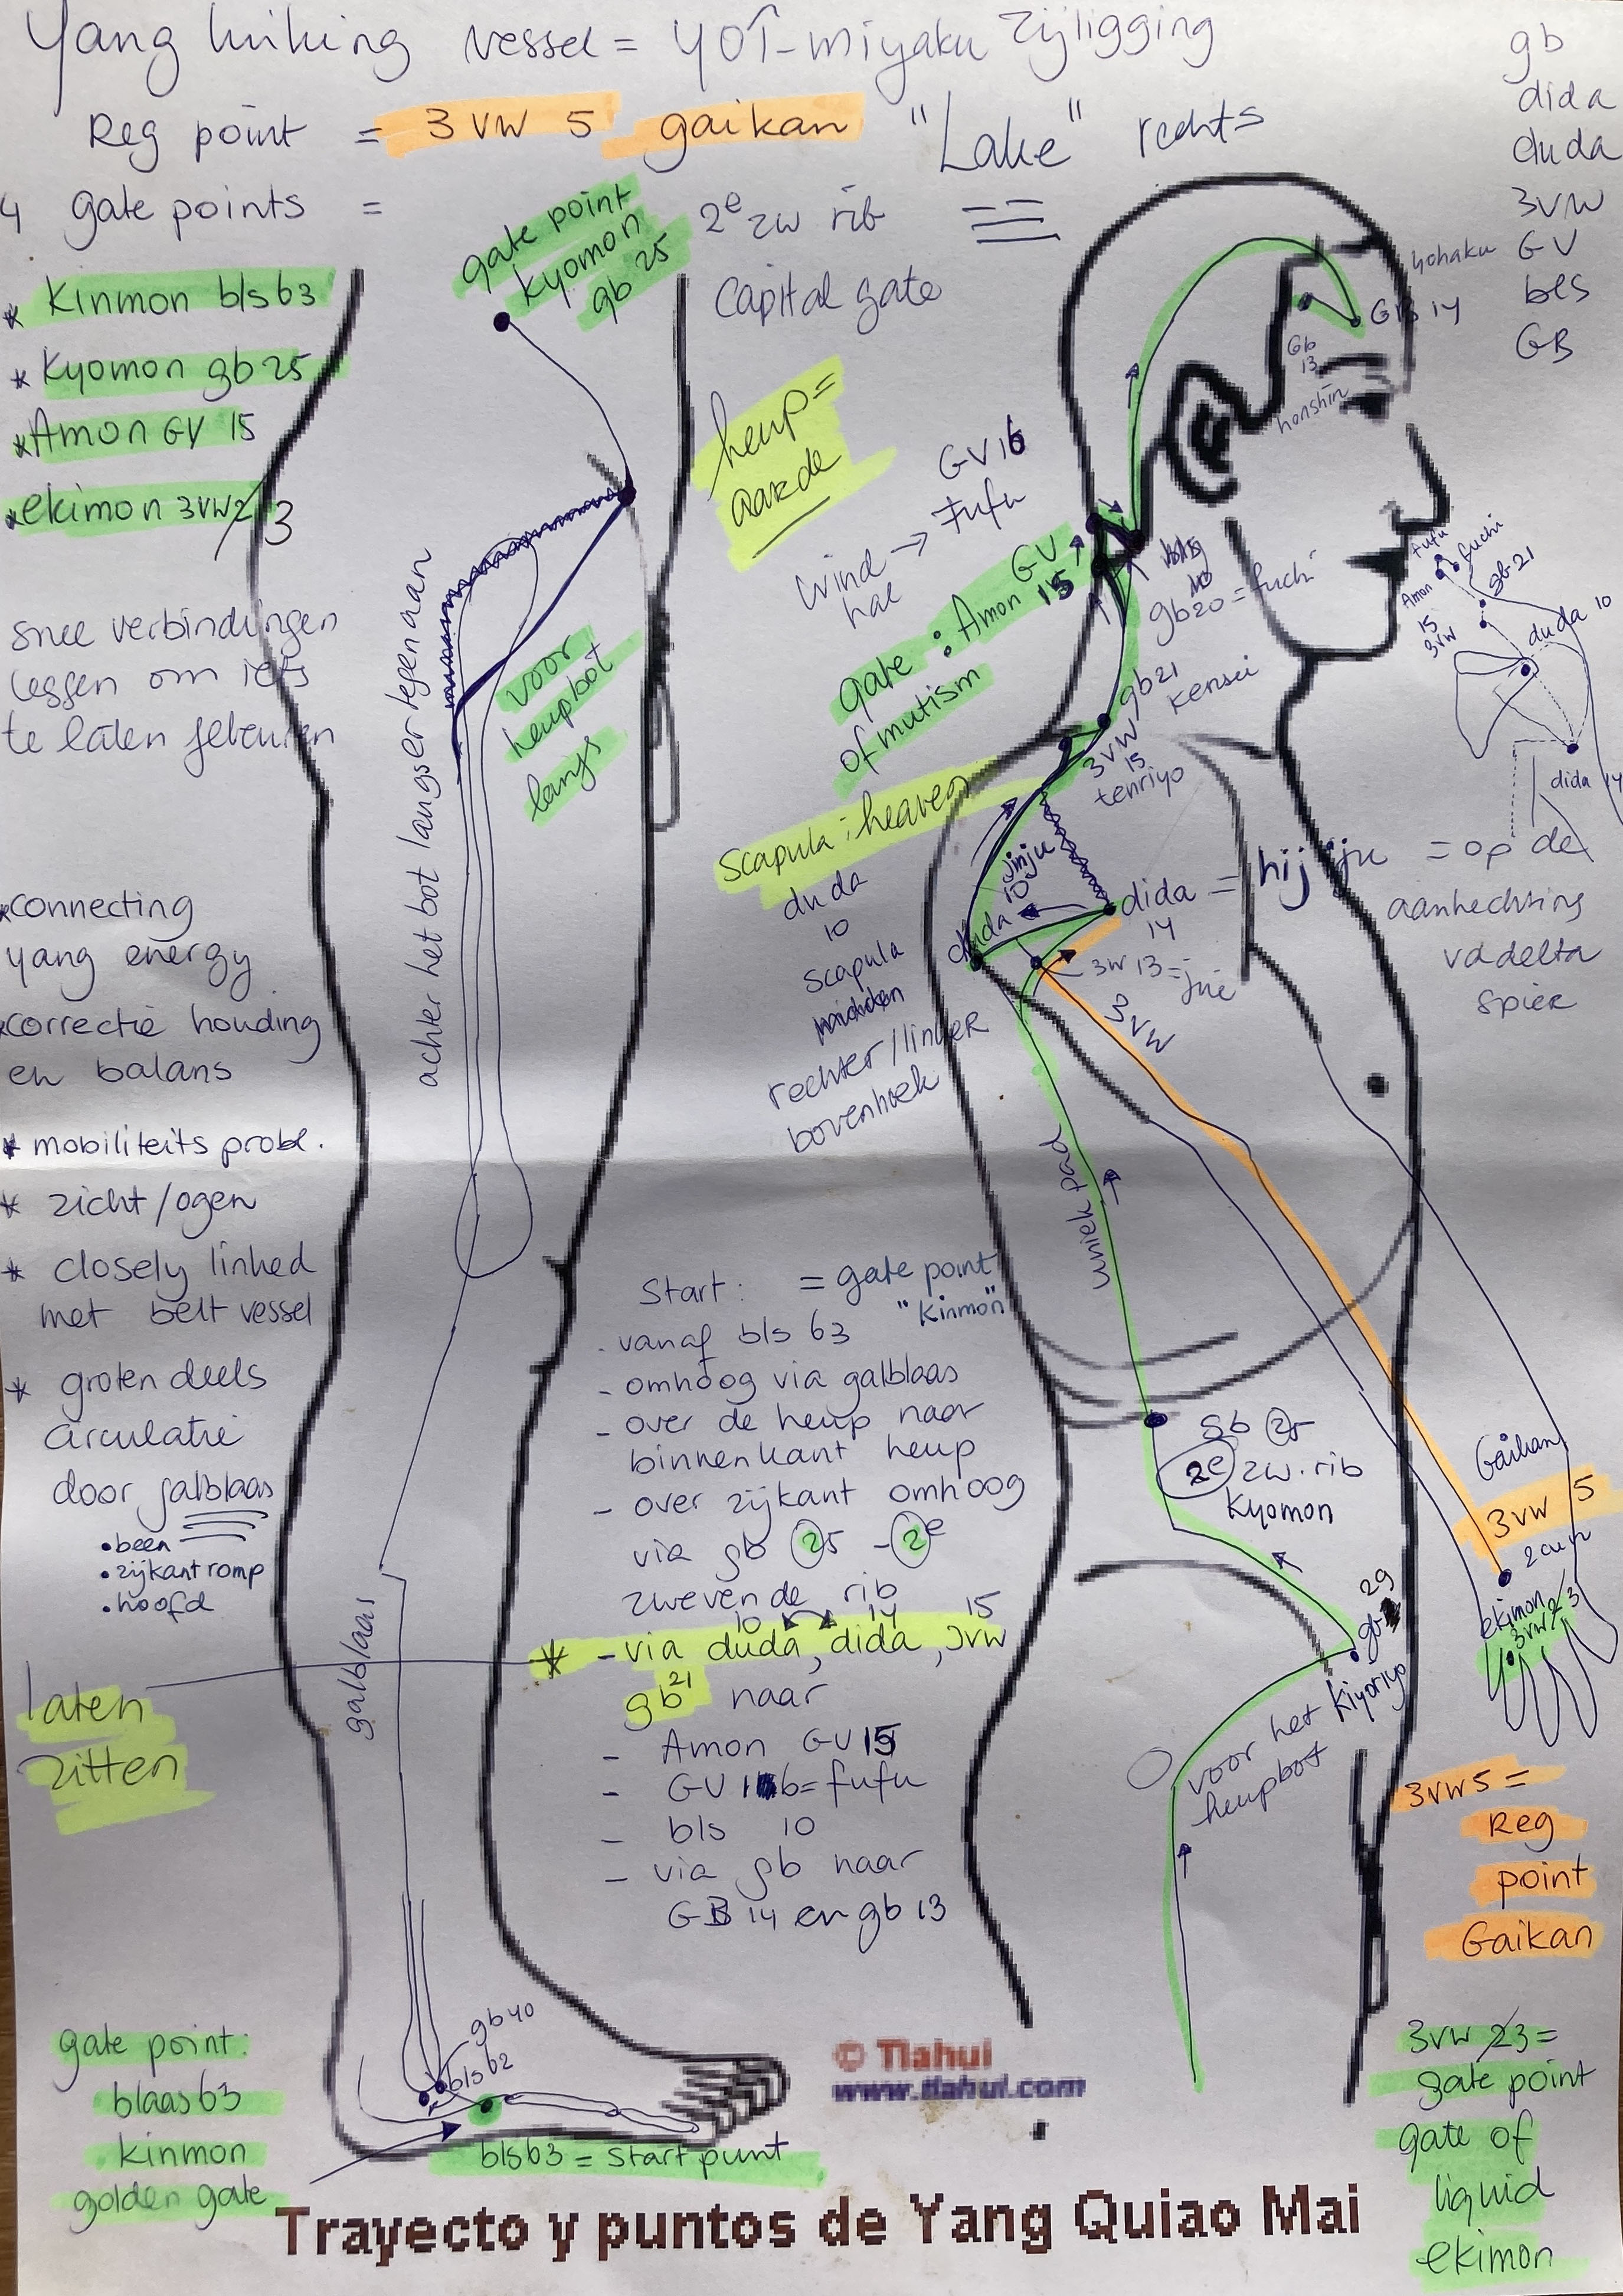 Yang linking vessel = YOI-miyaku zijligging
Reg point = 3 VW 5 gaikan "Lake" rechts
4 gate points =
* Kinmon bls 63
* Kyomon gb 25
* Amon GV 15
* ekimon 3VW 2/3
gate point
kyomon
gb 25
2e zw rib
Capital gate
gb
dida
duda
3VW
GV
bls
GB
heup=
aarde
snee verbindingen
leggen om iets
te laten gebeuren
* connecting
yang energy
* correctie houding
en balans
* mobiliteits probl.
* zicht/ogen
* closely linked
met belt vessel
* groten deels
circulatie
door galblaas
• been
• zijkant romp
• hoofd
laten
zitten
achter het bot langs er tegen aan
voor
heupbot
langs
galblaas
gb 40
bls 62
gate point:
blaas 63
kinmon
golden gate
bls 63 = Start punt
GV 16
Fufu
Wind →
gate : Amon GV 15
of mutism
Scapula : heaven
duda
10
scapula
rechter/linker
bovenhoek
yohaku
GB 14
Gb
13
honshin
gb 20 = fuchi
gb 21
kensei
3VW
15
tenriyo
jinju
10
duda
dida = hiji ju = op de
14
aanhechting
vd delta
spier
3W 13 = jue
3VW
fufu
fuchi
Amon
gb 21
15
3VW
duda 10
dida 14
uniek pad
Start: = gate point
"Kinmon"
. vanaf bls 63
- omhoog via galblaas
- over de heup naar
binnenkant heup
- over zijkant omhoog
via gb 25 - 2e
zwevende rib
10 14 15
* - via duda, dida, 3VW
gb 21 naar
- Amon GV 15
- GV 16 = fufu
- bls 10
- via gb naar
GB 14 en gb 13
gb 25
2e zw. rib
Kyomon
Gaikan
3VW 5
2 cun
ekimon
3VW 2/3
gb 29
Kiyoriyo
voor het
heupbot
3VW 5 =
Reg
point
Gaikan
3VW 2/3 =
gate point
gate of
liquid
ekimon
© Tlahui
www.tlahui.com
Trayecto y puntos de Yang Quiao Mai